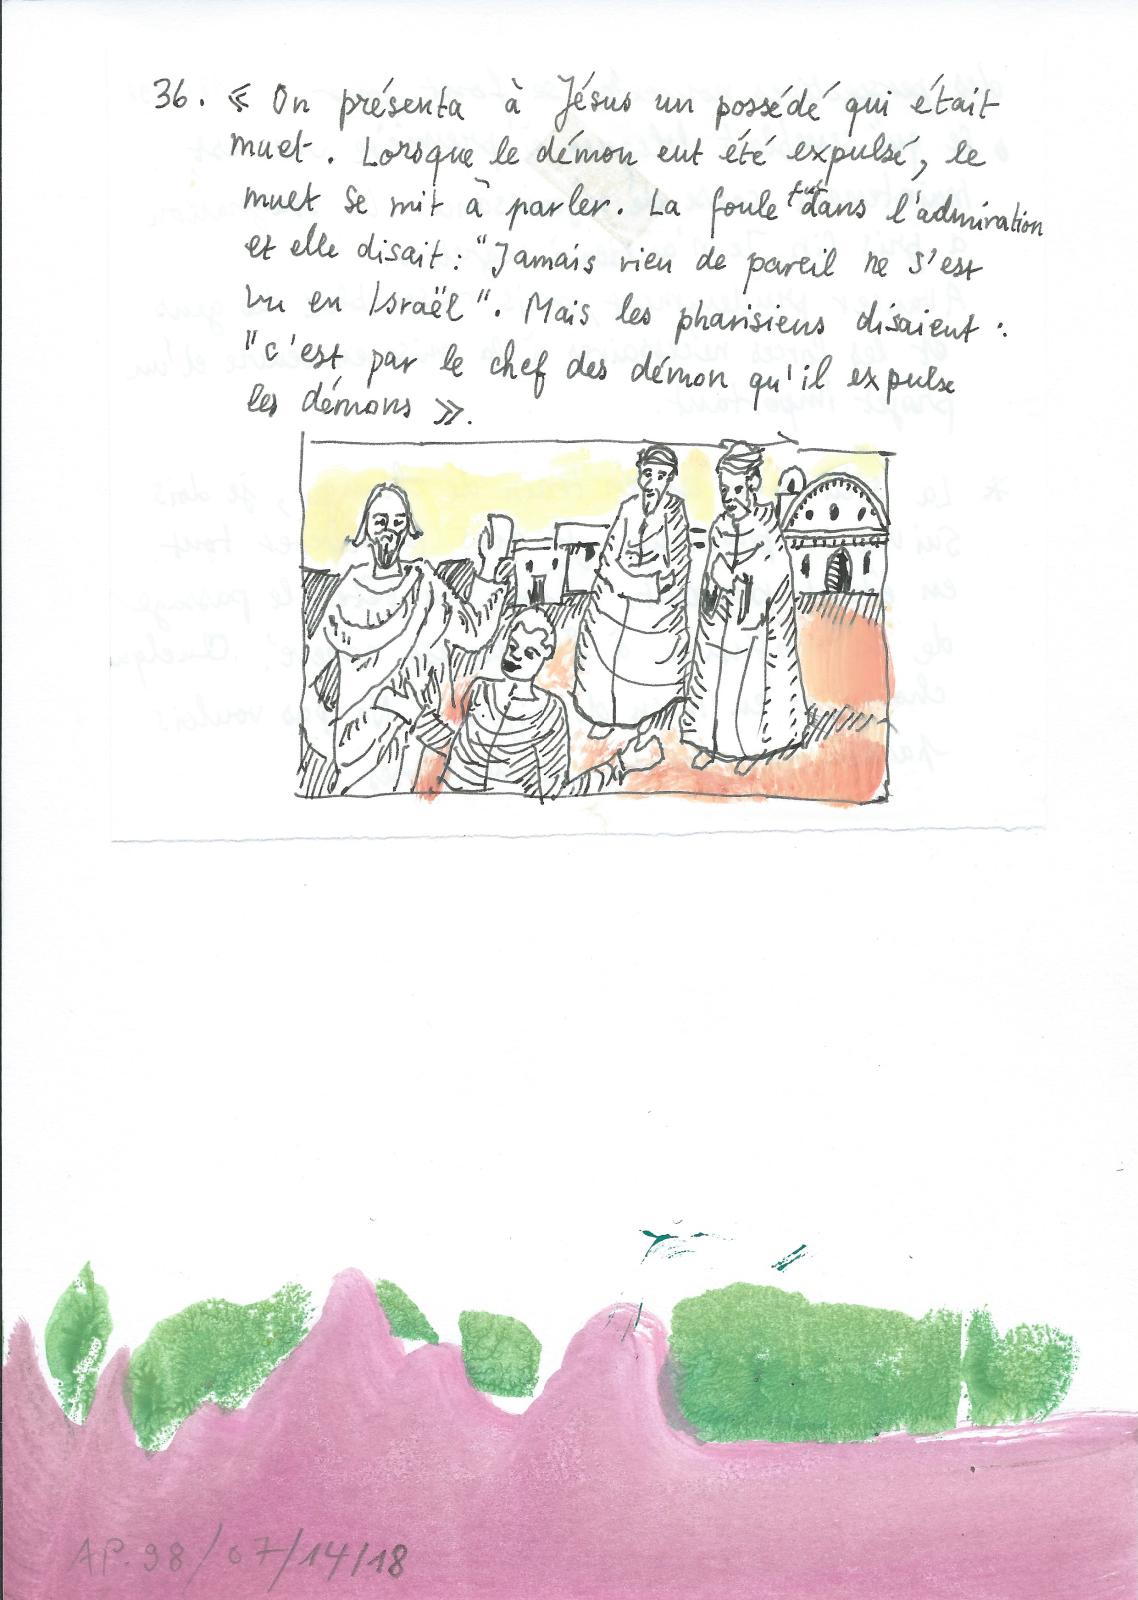 36. « On présenta à Jésus un possédé qui était
muet. Lorsque le démon eut été expulsé, le
muet se mit à parler. La foule fut dans l'admiration
et elle disait : "Jamais rien de pareil ne s'est
vu en Israël". Mais les pharisiens disaient :
"c'est par le chef des démon qu'il expulse
les démons ».
AP.98/07/14/18